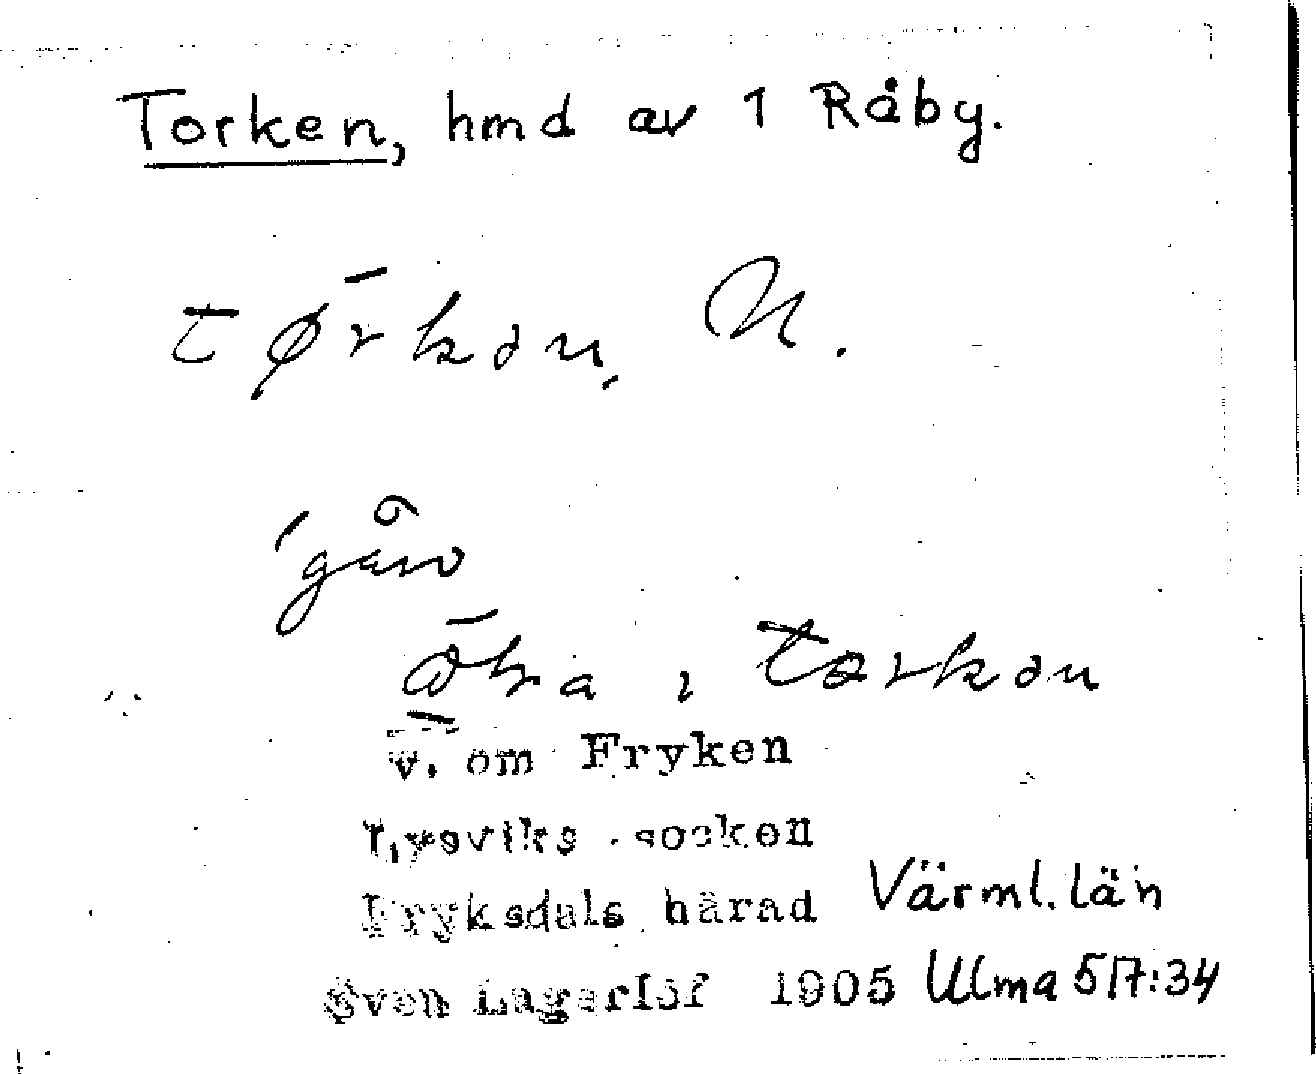 Torken, hmd av 1 Råby.
tørkən, N.
gårɔ
åka ı torkən
v. om Fryken
Lysviks socken
Fryksdals härad Värml. län
Sven Lagerlöf 1905 Ulma 517:34